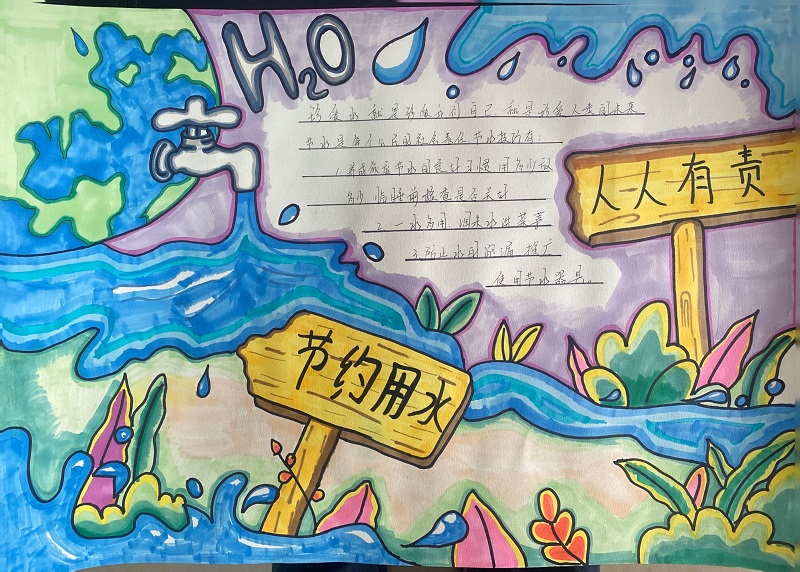 H2O
珍爱水 就是珍爱我们自己 就是珍爱人类的未来
节水是每个公民的社会责任 节水技巧有:
1.养成放在节水的良好习惯 用多少放
多少 临睡前检查是否关好
2.一水多用 洄来水洗菜等
3.防止水的跑漏 推广
使用节水器具。
人人有责
节约用水